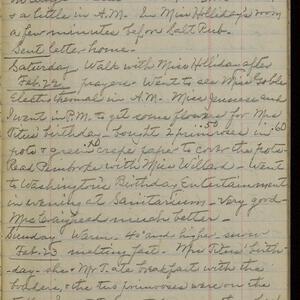 & a little in A.M. In Miss Holliday's room
a few minutes before Salt Rub.
Sent letter home.
Saturday Walk with Miss Holliday after
Feb. 22 prayers - Went to see Miss Goble
Electrothermal in A.M. Miss and
I went in P.M. to get some flowers for Mrs
Titus' birthday - bought 2 primroses in .60
pots & green crepe paper to cover the pots -
Read Pembroke with Miss Willard - Went
to Washington's Birthday Entertainment
in evening at Sanitarium - very good -
Mrs much better -
Sunday Warm - 40 and higher snow
Feb. 23 melting fast. Mrs Titus' birth-
day - she & Mr T. ate breakfast with the
, & the two primroses were on the